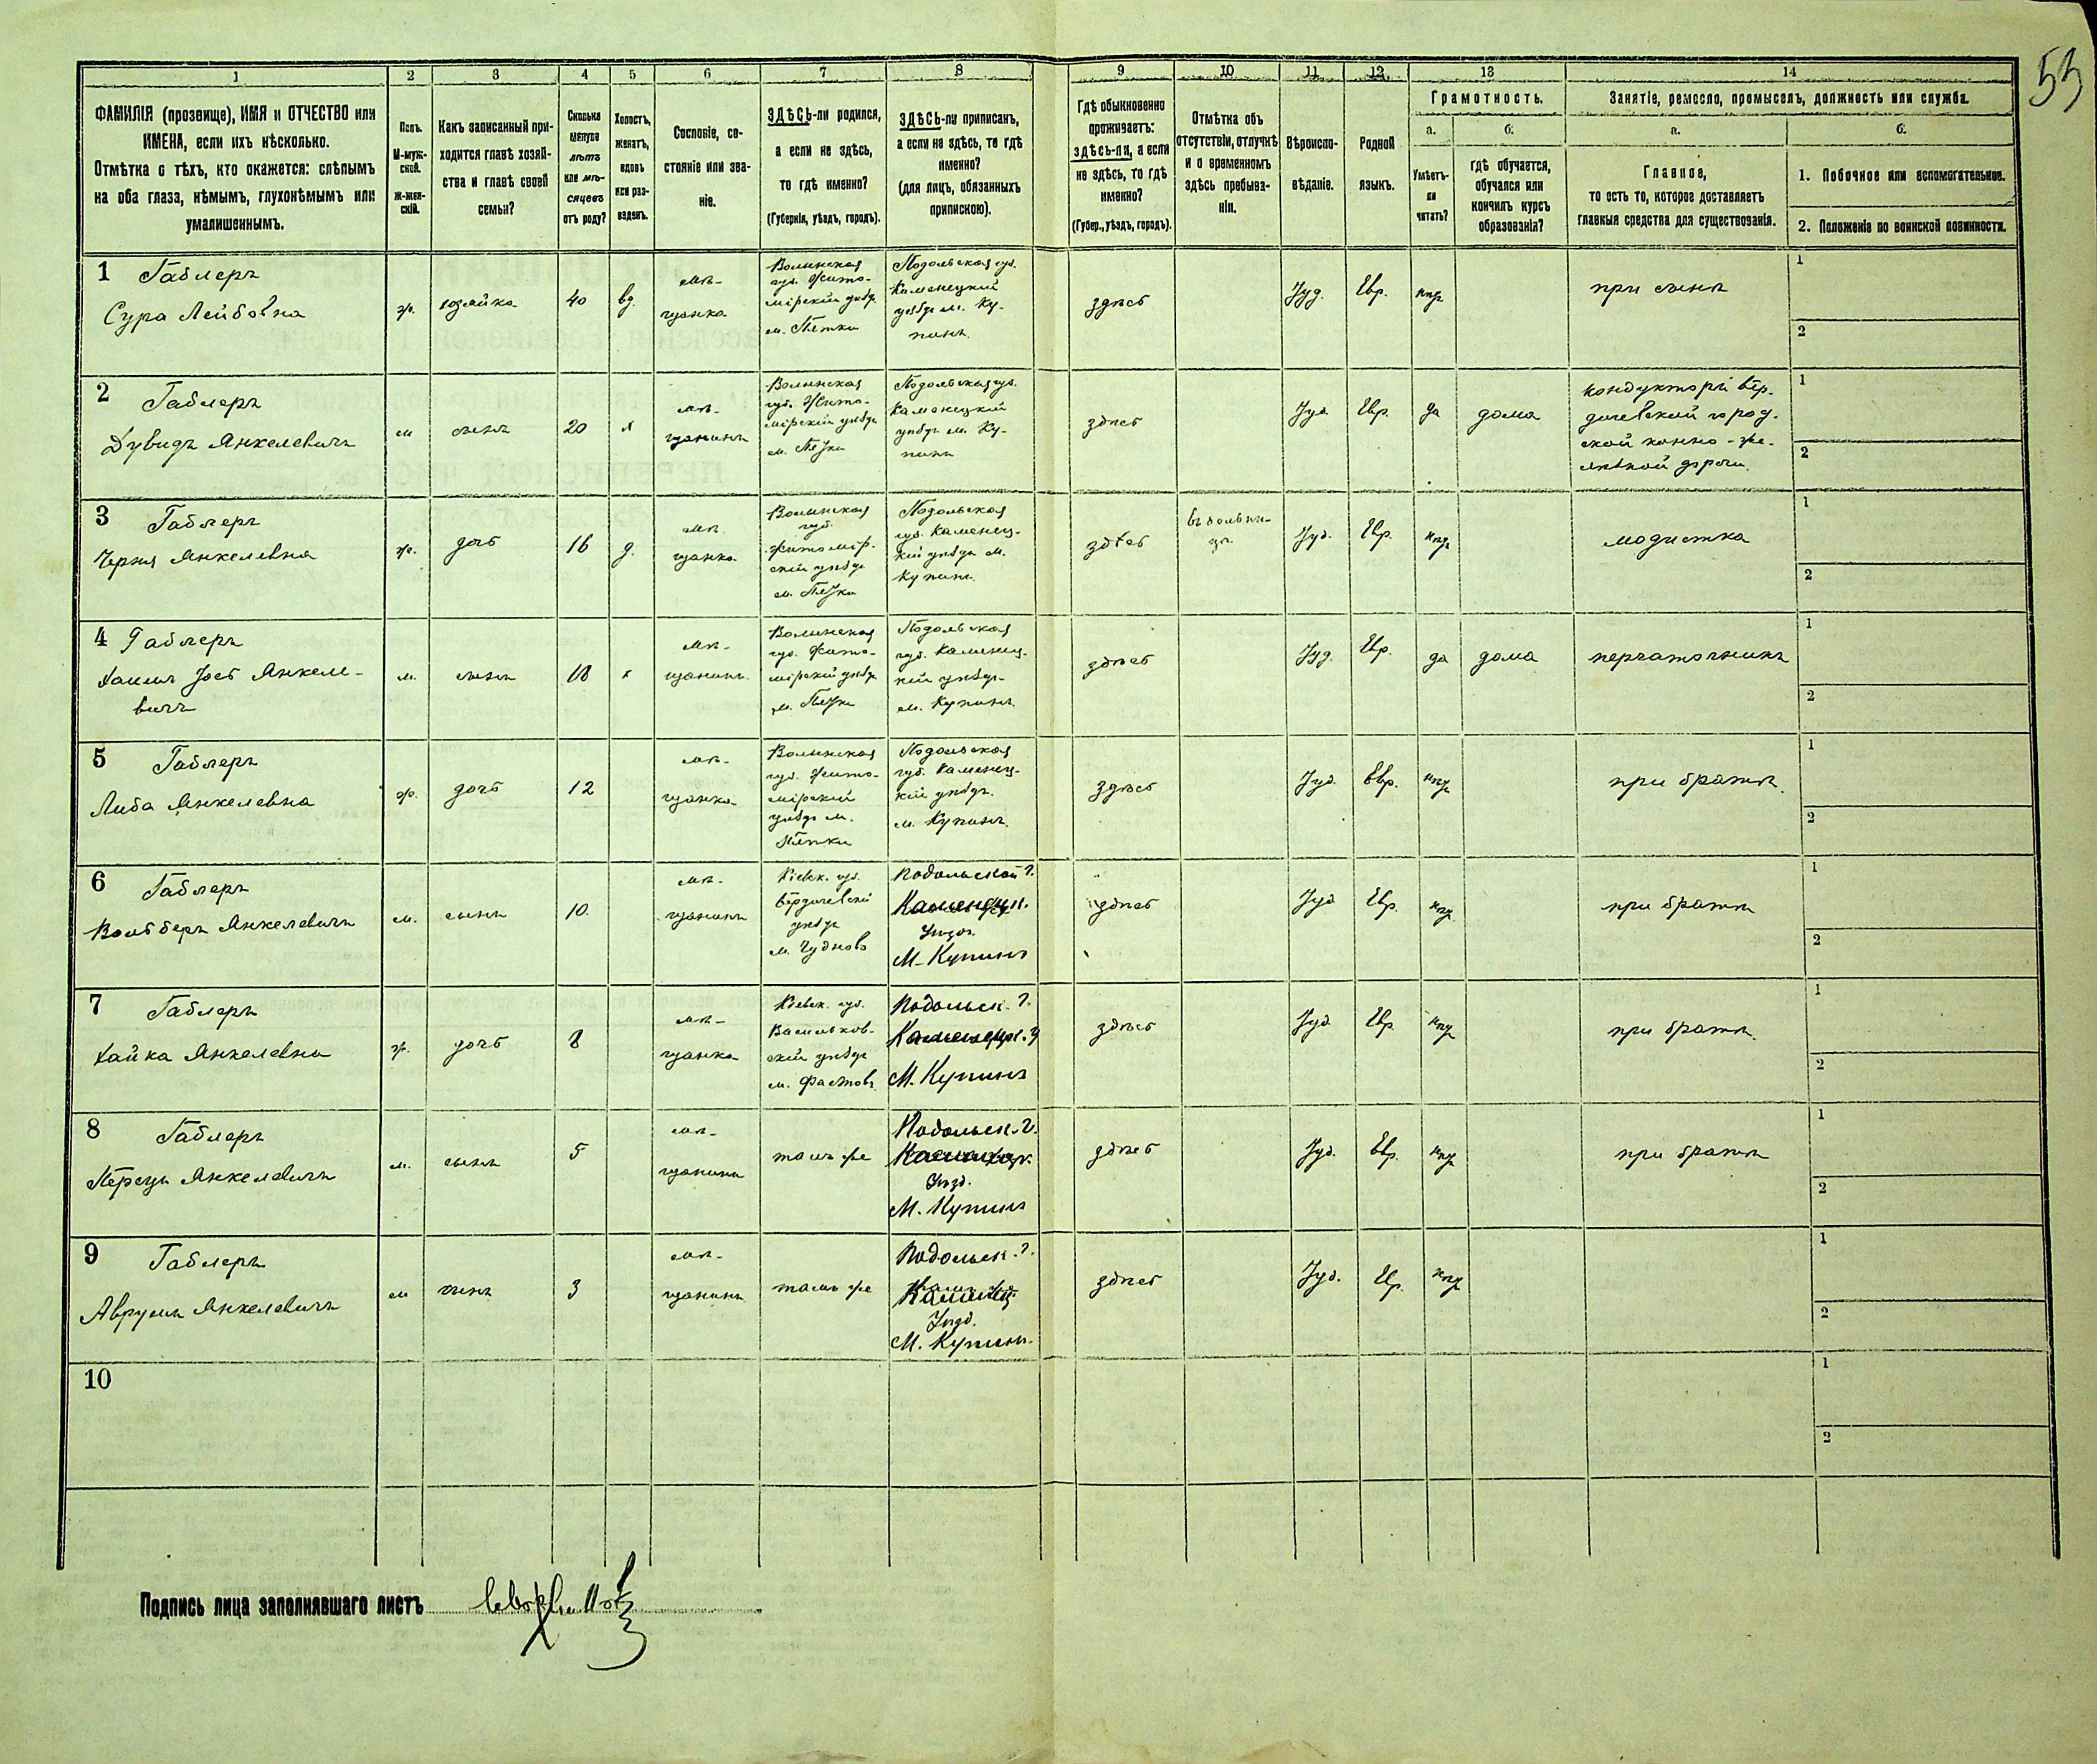 53
1 2 3 4 5 6 7 8 9 10 11 12 13 14
ФАМИЛІЯ (прозвище), ИМЯ и ОТЧЕСТВО или
ИМЕНА, если ихъ нѣсколько.
Отмѣтка о тѣхъ, кто окажется: слѣпымъ
на оба глаза, нѣмымъ, глухонѣмымъ или
умалишеннымъ.
Полъ.
М-муж-
ской.
Ж-жен-
скій.
Какъ записанный при-
ходится главѣ хозяй-
ства и главѣ своей
семьи?
Сколько
минуло
лѣтъ
или мѣ-
сяцевъ
отъ роду?
Холостъ,
женатъ,
вдовъ
или раз-
веденъ.
Сословіе, со-
стояніе или зва-
ніе.
ЗДѢСЬ-ли родился,
а если не здѣсь,
то гдѣ именно?
(Губернія, уѣздъ, городъ).
ЗДѢСЬ-ли приписанъ,
а если не здѣсь, то гдѣ
именно?
(для лицъ, обязанныхъ
припискою).
Гдѣ обыкновенно
проживаетъ:
здѣсь-ли, а если
не здѣсь, то гдѣ
именно?
(Губер., уѣздъ, городъ).
Отмѣтка объ
отсутствіи, отлучкѣ
и о временномъ
здѣсь пребыва-
ніи.
Вѣроиспо-
вѣданіе.
Родной
языкъ.
Грамотность.
а.
Умѣетъ-
ли
читать?
б.
гдѣ обучается,
обучался или
кончилъ курсъ
образованія?
Занятіе, ремесло, промыселъ, должность или служба.
а.
Главное,
то есть то, которое доставляетъ
главныя средства для существованія.
б.
1. Побочное или вспомогательное.
2. Положеніе по воинской повинности.
1 Габлеръ
Сура Лейбовна
ж.
хозяйка
40
вд.
мѣ-
щанка
Волынская
губ. Жито-
мірскій уѣздъ
м. Пятки
Подольская гу.
Каменецкій
уѣздъ м. Ку-
пинъ.
здѣсь
Іуд.
Евр.
нѣтъ
при сынѣ
1
2
2 Габлеръ
Дувидъ Янкелевичъ
м
сынъ
20
х
мѣ-
щанинъ
Волынская
губ. Жито-
мірскій уѣздъ
м. Пятки
Подольская гу.
Каменецкій
уѣздъ м. Ку-
пинъ
здѣсь
Іуд.
Евр.
да
дома
кондукторъ бер-
дичевской город-
ской конно-же-
лѣзной дороги.
1
2
3 Габлеръ
Черня Янкелевна
ж.
дочь
16
д.
мѣ-
щанка
Волынская
губ.
Житомір-
скій уѣздъ
м. Пятки
Подольская
губ. Каменец-
кій уѣздъ м.
Купинъ.
здѣсь
въ больни-
цѣ.
Іуд.
Евр.
нѣтъ
модистка
1
2
4 Габлеръ
Хаимъ Іось Янкеле-
вичъ
м.
сынъ
18
х
мѣ-
щанинъ.
Волынская
губ. Жито-
мірскій уѣздъ
м. Пятки
Подольская
губ. Каменец-
кій уѣздъ
м. Купинъ.
здѣсь
Іуд.
Евр.
да
дома
перчаточникъ
1
2
5 Габлеръ
Либа Янкелевна
ж.
дочь
12
мѣ-
щанка
Волынская
губ. Жито-
мірскій
уѣздъ м.
Пятки
Подольская
губ. Каменец-
кій уѣздъ.
м. Купинъ.
здѣсь
Іуд.
Евр.
нѣтъ
при братѣ.
1
2
6 Габлеръ
Вольберъ Янкелевичъ
м.
сынъ
10.
мѣ-
щанинъ
Кіевск. гу.
Бердичевскій
уѣздъ
м. Чудновъ
Подольской г.
Каменецк.
Уѣзд.
М. Купинъ
здѣсь
Іуд
Евр.
нѣтъ
при братѣ
1
2
7 Габлеръ
Хайка Янкелевна
ж.
дочь
8
мѣ-
щанка
Кіевск. гу.
Васильков-
скій уѣздъ
м. Фастовъ.
Подольск. г.
Каменецк. у
М. Купинъ
здѣсь
Іуд.
Евр.
нѣтъ
при братѣ.
1
2
8 Габлеръ
Перецъ Янкелевичъ
м.
сынъ
5
мѣ-
щанинъ
тамъ же
Подольск. г.
Каменецк.
Уѣзд.
М. Купинъ
здѣсь
Іуд.
Евр.
нѣтъ
при братѣ
1
2
9 Габлеръ
Аврумъ Янкелевичъ
м
сынъ
3
мѣ-
щанинъ
тамъ же
Подольск. г.
Каменец
Уѣзд.
М. Купинъ.
здѣсь
Іуд.
Евр.
нѣтъ
1
2
10
1
2
Подпись лица заполнявшаго листъ